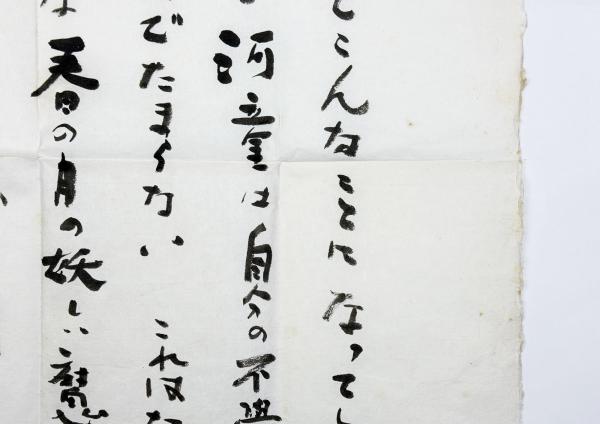 とこんなことになってし
河童は自分の不
でたまらない これはた
な春の月の妖しい魔